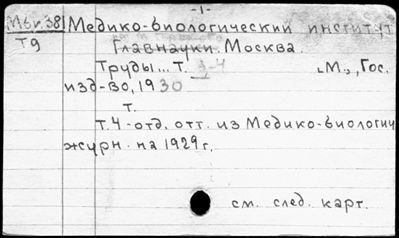 -1-
М61/38 Медико-биологический институт
Т9 Главнауки. Москва.
Труды... Т. 3-4 "М.", Гос.
изд-во, 1930
т.
т.4-отд. отт. из Медико-биологич
журн. на 1929 г.
см. след. карт.